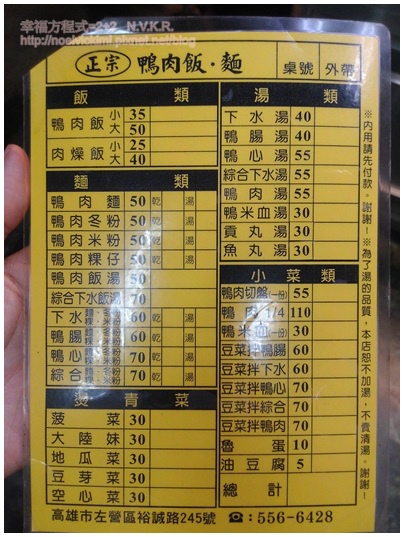 幸福方程式=2+2_N.V.K.R.
正宗 鴨肉飯·麵 桌號 外帶
飯類
鴨肉飯 小 35
大 50
肉燥飯 小 25
大 40
麵類
鴨肉麵 50 乾 湯
鴨肉冬粉 50 乾 湯
鴨肉米粉 50 乾 湯
鴨肉粿仔 50 乾 湯
鴨肉飯湯 50
綜合下水飯湯 70
下水 60 乾 湯
鴨腸 60 乾 湯
鴨心 70 乾 湯
綜合 70 乾 湯
燙青菜
菠菜 30
大陸妹 30
地瓜菜 30
豆芽菜 30
空心菜 30
湯類
下水湯 40
鴨腸湯 40
鴨心湯 55
綜合下水湯 55
鴨肉湯 55
鴨米血湯 30
貢丸湯 30
魚丸湯 30
小菜類
鴨肉切盤(一份) 55
鴨肉 1/4 110
鴨米血(一份) 30
豆菜拌鴨腸 60
豆菜拌下水 60
豆菜拌鴨心 70
豆菜拌綜合 70
豆菜拌鴨肉 70
魯蛋 10
油豆腐 5
總計
※內用請先付款。謝謝!※為了湯的品質,本店恕不加湯,不賣清湯。謝謝!
高雄市左營區裕誠路245號 ☎:556-6428